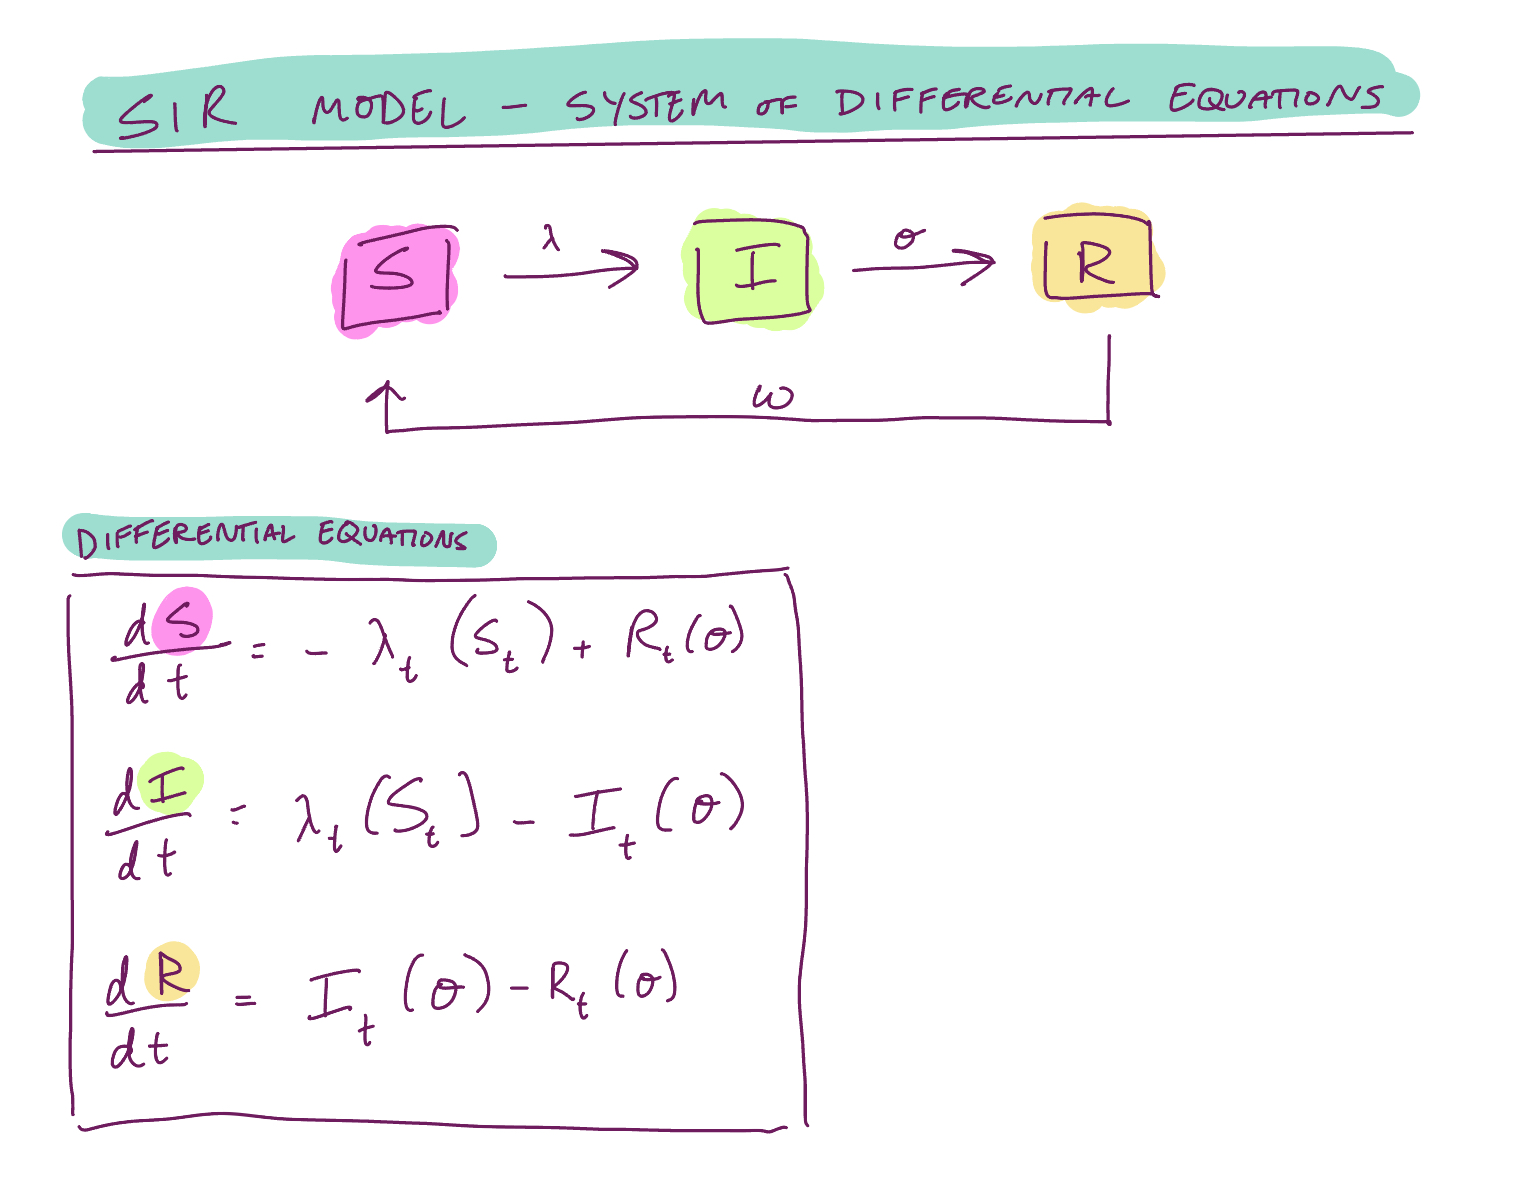 SIR MODEL - SYSTEM OF DIFFERENTIAL EQUATIONS
S λ I σ R
ω
DIFFERENTIAL EQUATIONS
dS/dt = - λt (St) + Rt(σ)
dI/dt = λt (St] - It (σ)
dR/dt = It (σ) - Rt (σ)